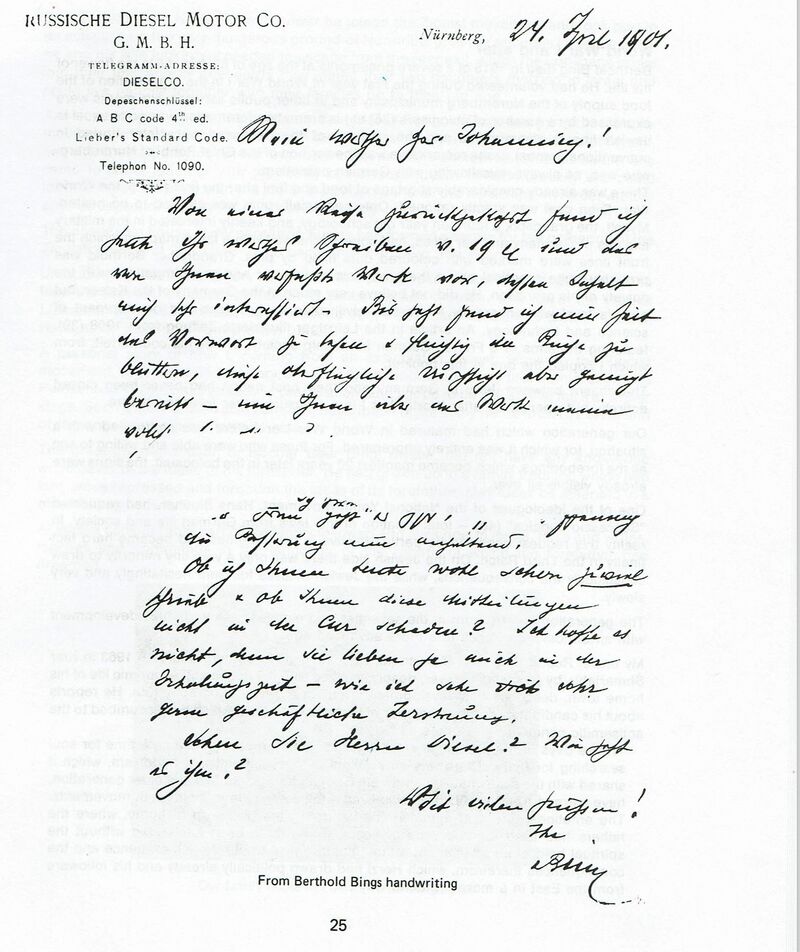 RUSSISCHE DIESEL MOTOR CO.
G. M. B. H.
TELEGRAMM-ADRESSE:
DIESELCO.
Depeschenschlüssel:
A B C code 4th ed.
Lieber's Standard Code.
Telephon No. 1090.
Nürnberg, 24. April 1901.
Mein werther Herr Johanning!
Von einer Reise zurückgekehrt fand ich
Ihr werthes Schreiben v. 19 und das
von Ihnen verfaßte Werk vor, dessen Inhalt
mich sehr interessiert. Bis jetzt fand ich nur Zeit
das Vorwort zu lesen & flüchtig die Reihe zu
blättern, diese oberflächliche aber genügt
bereits – um Ihnen über das Werk meine
die Besserung nun anhaltend.
Ob ich Ihnen heute wohl schon zuviel
schrieb & ob Ihnen diese Mittheilungen
nicht in der Cur schaden? Ich hoffe es
nicht, denn Sie lieben ja auch in der
Erholungszeit – wie ich sehr
gerne geschäftliche Zerstreuung.
Sehen Sie Herrn Diesel? Wie geht
es ihm?
Mit vielen Grüssen!
Ihr
Bing
From Berthold Bings handwriting
25